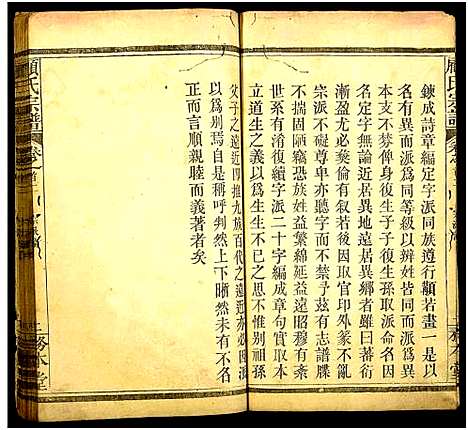 顧氏宗譜
錬成詩章編定字派同族遵行顯若畫一是以
名有異而派爲同等級以辨姓皆同而派爲異
本支不棼俾身復生子子復生孫取派命名因
此字數無論近居異地遠居異鄉者雖曰蕃衍
漸盈尤必奕倫有叙因取官印外篆不亂
宗派不礙尊卑亦聽字而不禁予茲有志譜牒
世系不同陋竊恐族姓益繁綿延益遠昭穆易
紊是以復續字派二十字編成章句實取本
立道生之義以爲生生不已思不惟別祖孫
父子之遠近四推九族百代之遠近亦必四派
以爲別焉自是稱呼判然上下曉然未有不名
正而言順親睦而義著者矣
顧氏宗譜
卷首二
務本堂